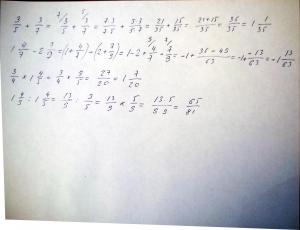 3/5 + 3/7 = 7/ 3/5 + 5/ 3/7 = 7·3/7·5 + 5·3/5·7 = 21/35 + 15/35 = 21+15/35 = 36/35 = 1 1/35
1 4/7 - 2 7/9 = (1 + 4/7) - (2 + 7/9) = 1 - 2 + 9/ 4/7 - 7/ 7/9 = -1 + 36 - 49/63 = -1 + -13/63 = -1 13/63
3/4 × 1 4/5 = 3/4 × 9/5 = 27/20 = 1 7/20
1 4/9 : 1 4/5 = 13/9 : 9/5 = 13/9 × 5/9 = 13·5/9·9 = 65/81